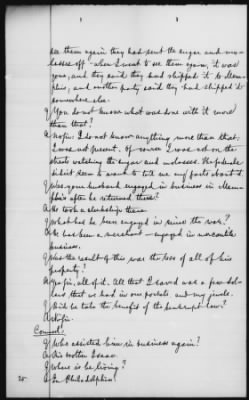 see them again they had sent the sugar and mo-
lasses off - when I went to see them again, it was
gone, and they said they had shipped it to Mem-
phis, and another party said they had shipped it
somewhere else.
Q You do not know what was done with it more
than that?
A No sir: I do not know anything more than that.
I was not present. of course I was not on the
streets watching the sugar and molasses. The people
didn't seem to want to tell me any facts about it.
Q Was your husband engaged in business in Mem-
phis after he returned there?
A He took a clerkship there.
Q What has he been engaged in since the war?
A He has been a merchant - engaged in mercantile
business.
Q Was the result of this war the loss of all of his
property?
A Yes sir, all of it. All that I saved was a few dol-
lars that we had in our pockets and my jewels.
Q Did he take the benefit of the bankrupt law?
A No sir.
Counsel:
Q Who assisted him in business again?
A His brother Isaac.
Q Where is he living?
A In Philadelphia